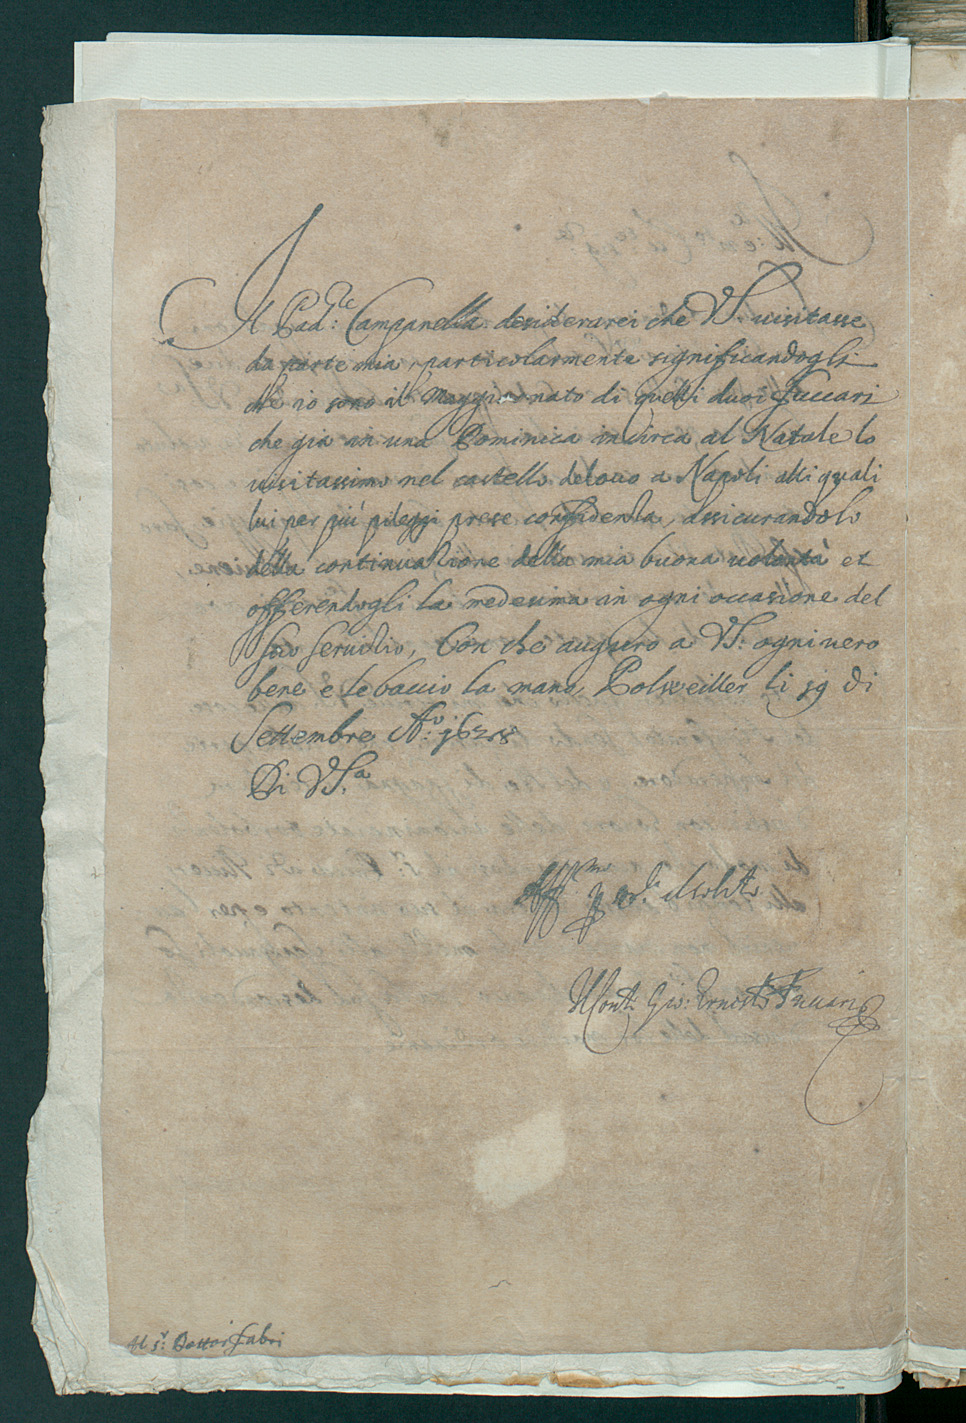 Il Pad:re Campanella desiderarei che VS. uisitasse
da parte mia, particolarmente significandogli
che io sono il Maggiornato di quelli duoi Fuccari
che già in una Dominica incirca al Natale lo
uisitassimo nel castello delouo a Napoli alli quali
lui per più pileggi prese confidenza, assicurandolo
della continuazione della mia buona uolontà et
offerendogli la medesima in ogni occasione del
suo seruizio, Con che auguro a VS: ogni uero
bene e le baccio la mano, Polweiller li 19 di
Settembre Ao: 1628
Di VS.a
Aff.mo
Il Conte Gio: Ernesto Fuccari
Al s.r Dottor Fabri